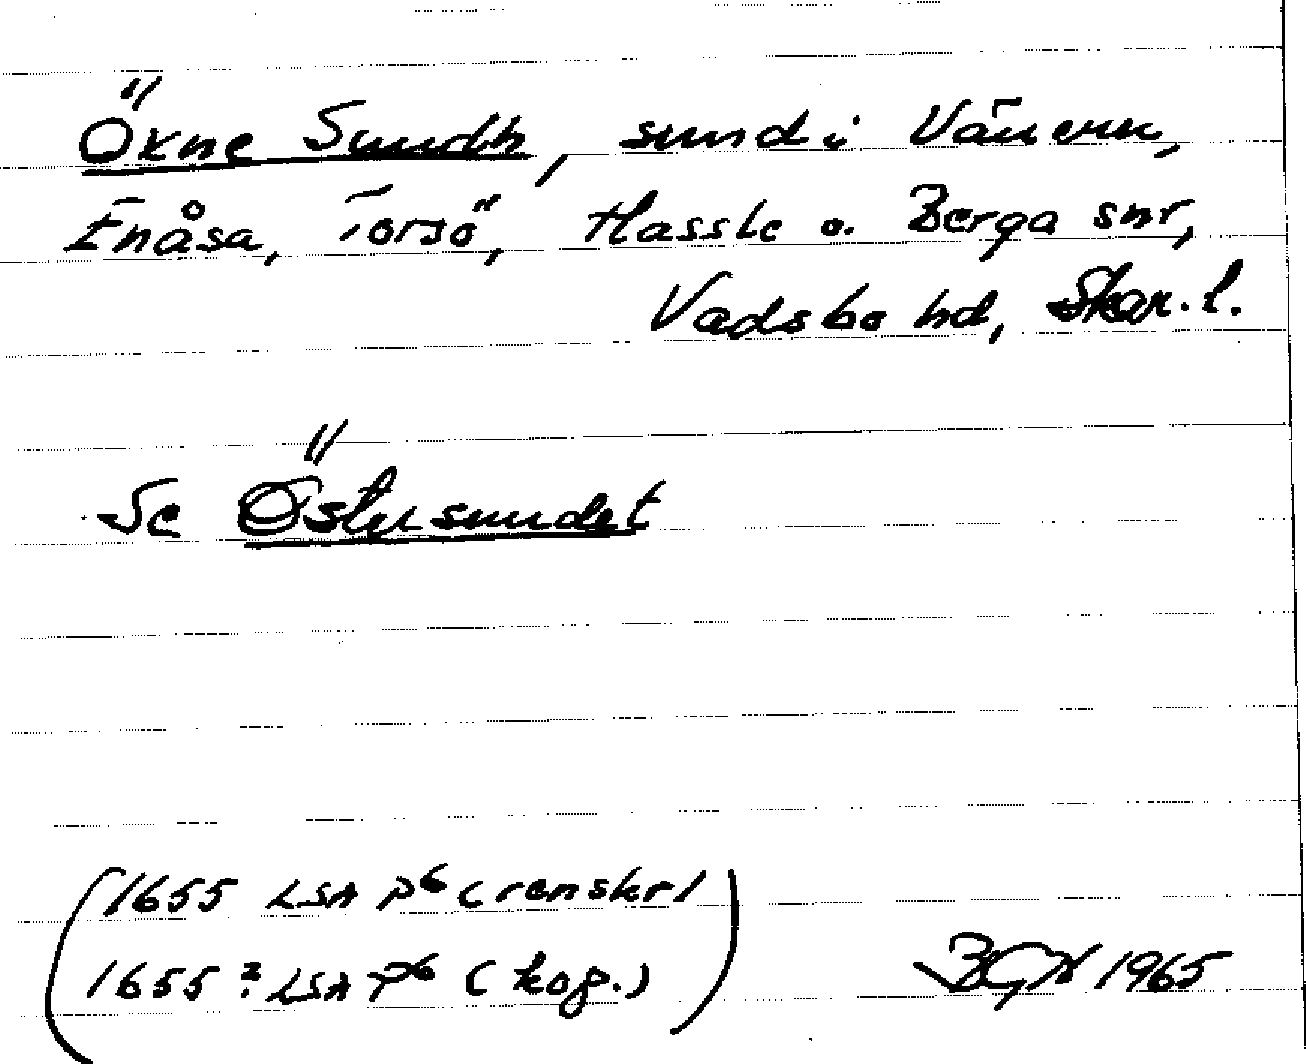 Ökne Sundh, sund i Vänern,
Enåsa, Torsö, Hassle o. Berga snr,
Vadsbo hd, Skar. l.
Se Östersundet
(1655 LSA P6 (renskr)
1655? LSA P6 (kop.))
BGN 1965